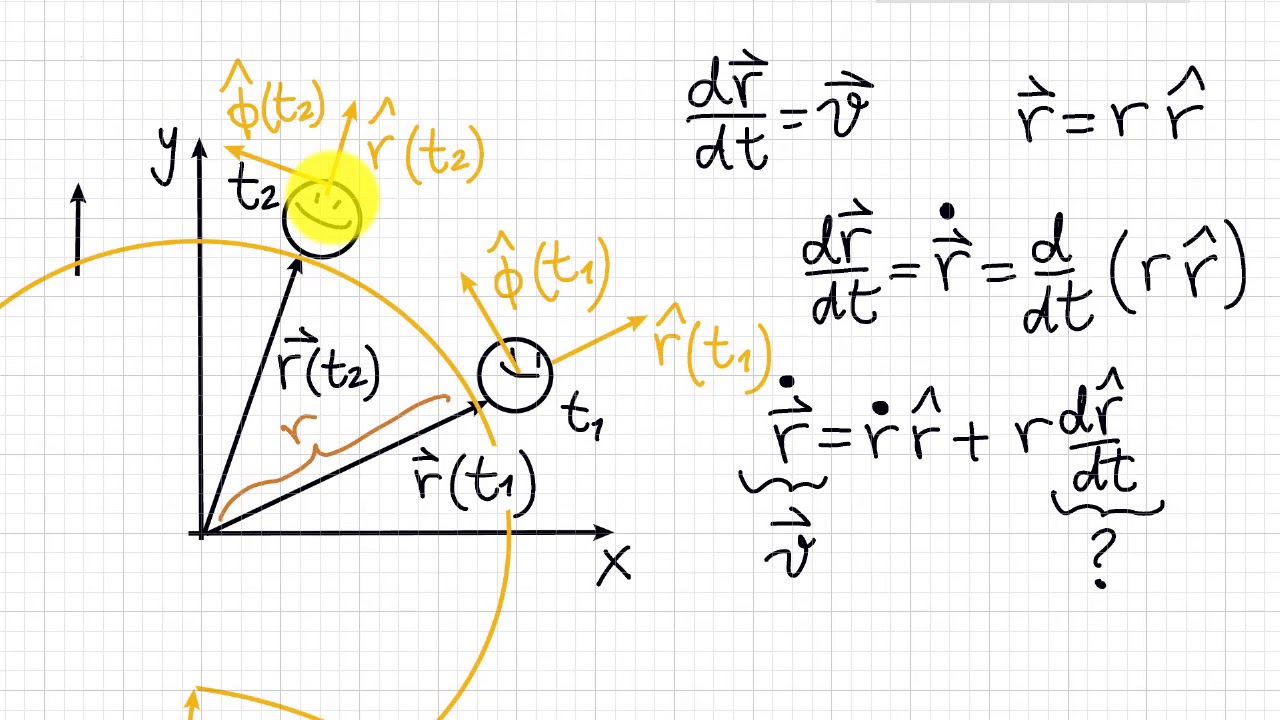 ϕ̂(t₂)
r̂(t₂)
y
t₂
ϕ̂(t₁)
r̂(t₁)
r⃗(t₂)
r
t₁
r⃗(t₁)
x
dr⃗/dt = v⃗
r⃗ = r r̂
dr⃗/dt = ṙ⃗ = d/dt (r r̂)
ṙ⃗ = ṙ r̂ + r dr̂/dt
v⃗
?